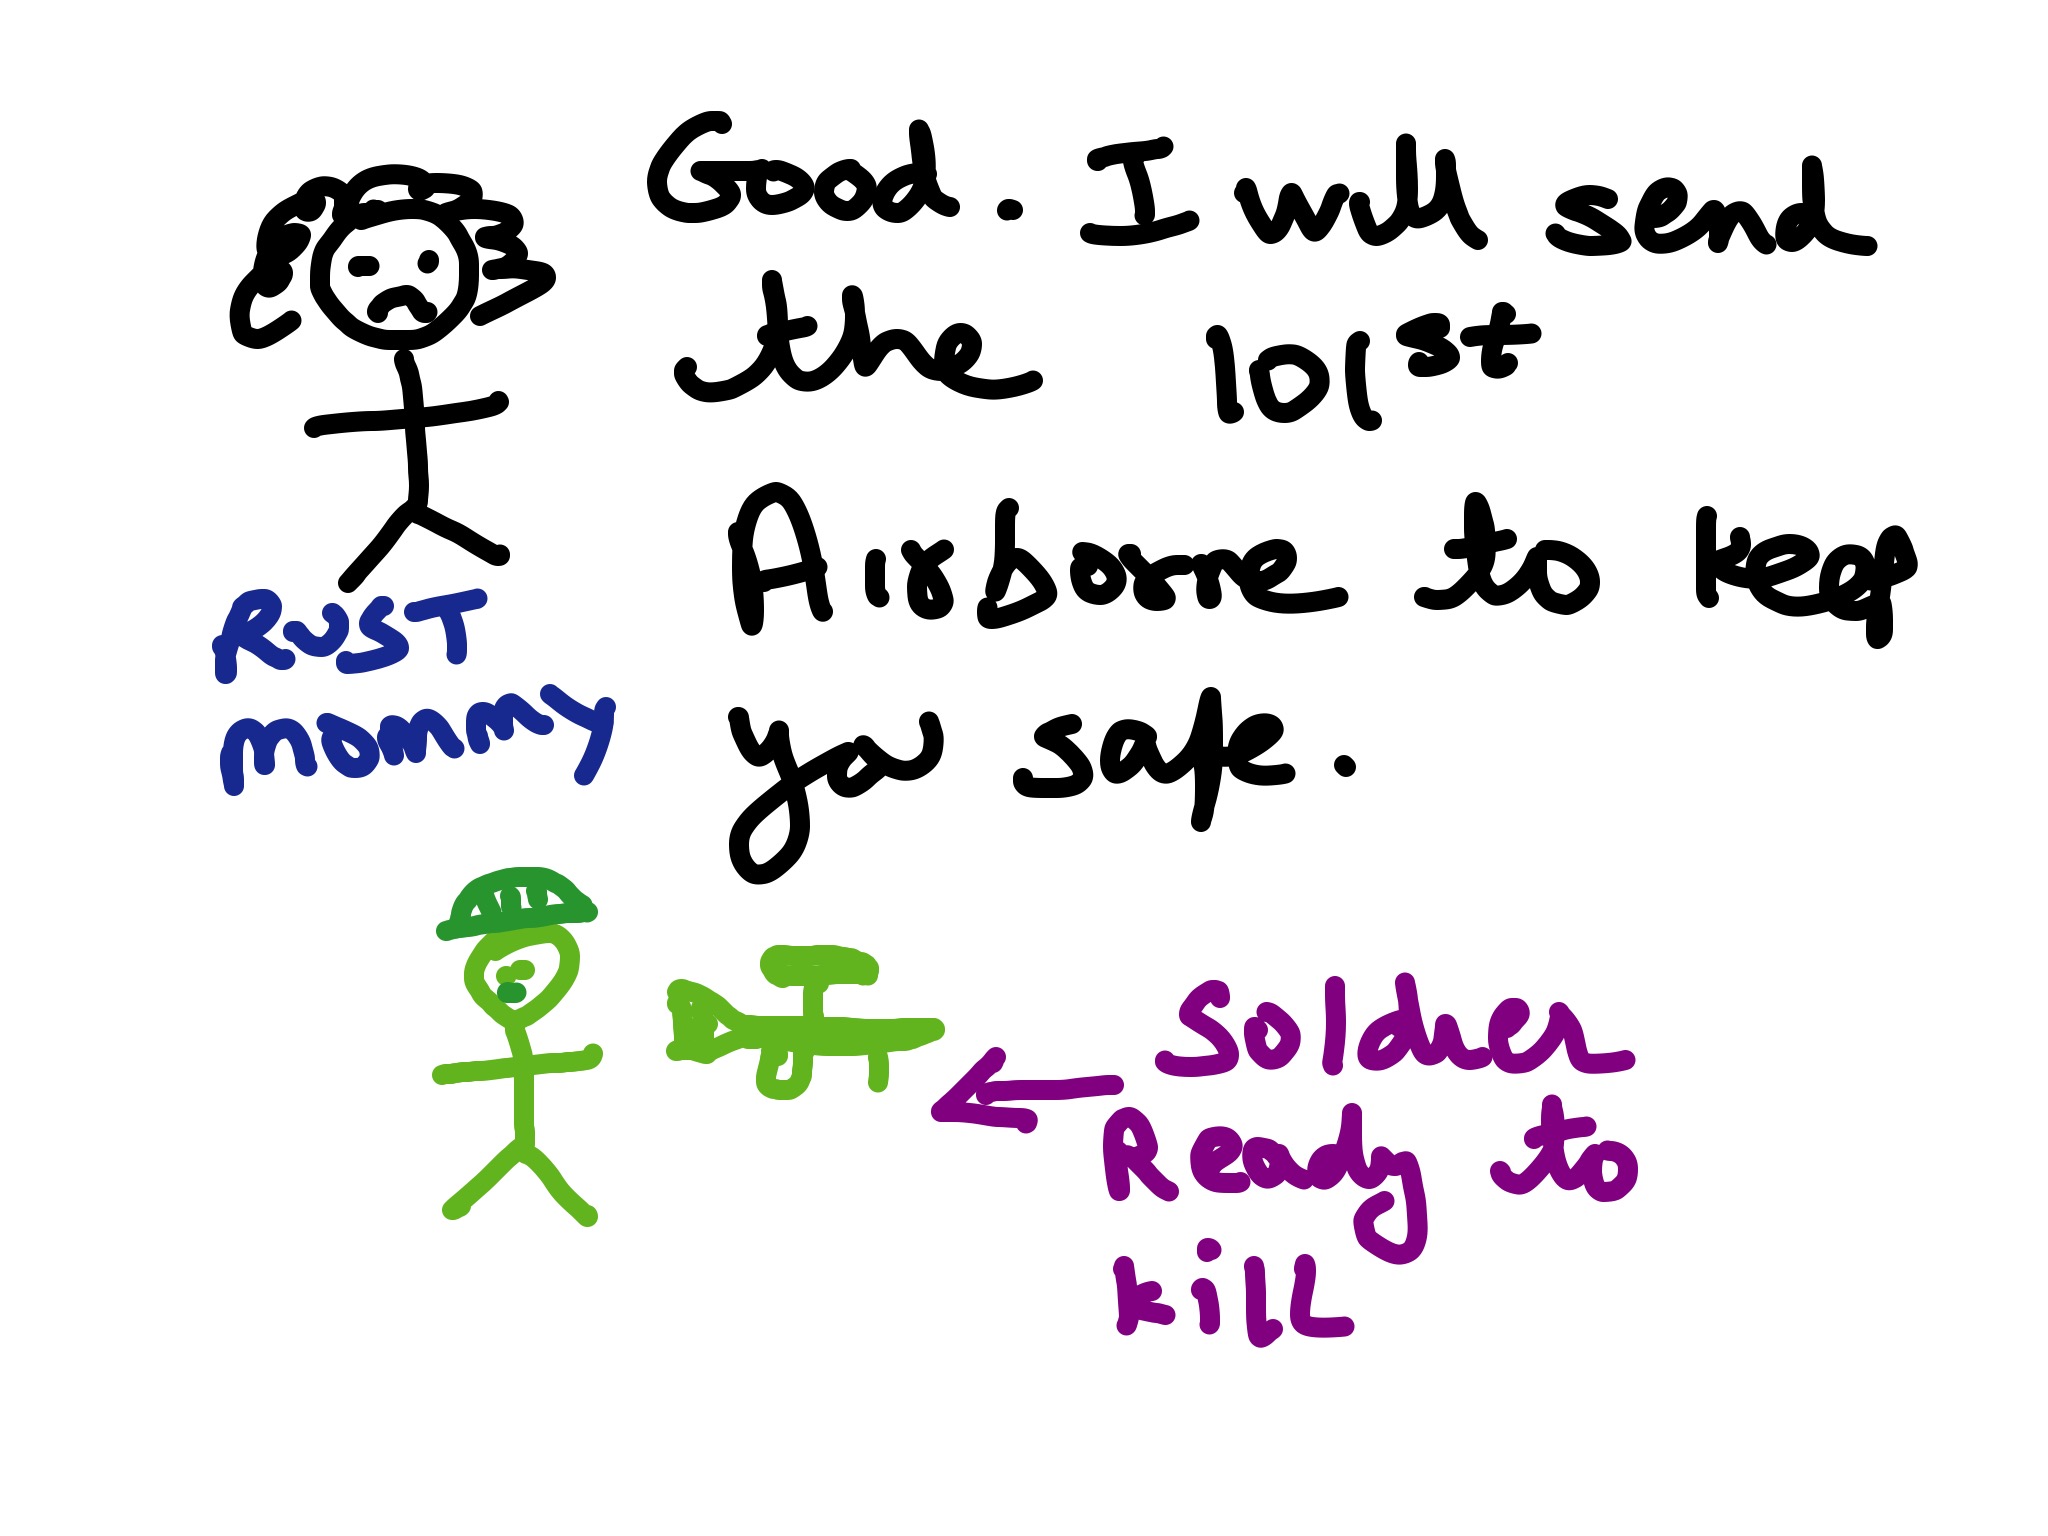 Good. I will send
the 101st
Airborne to keep
you safe.
RUST
mommy
Soldier
Ready to
kill